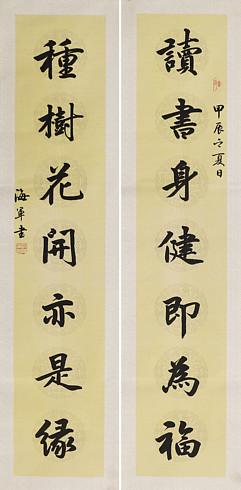 讀書身健即為福
甲辰之夏日
種樹花開亦是緣
海軍書